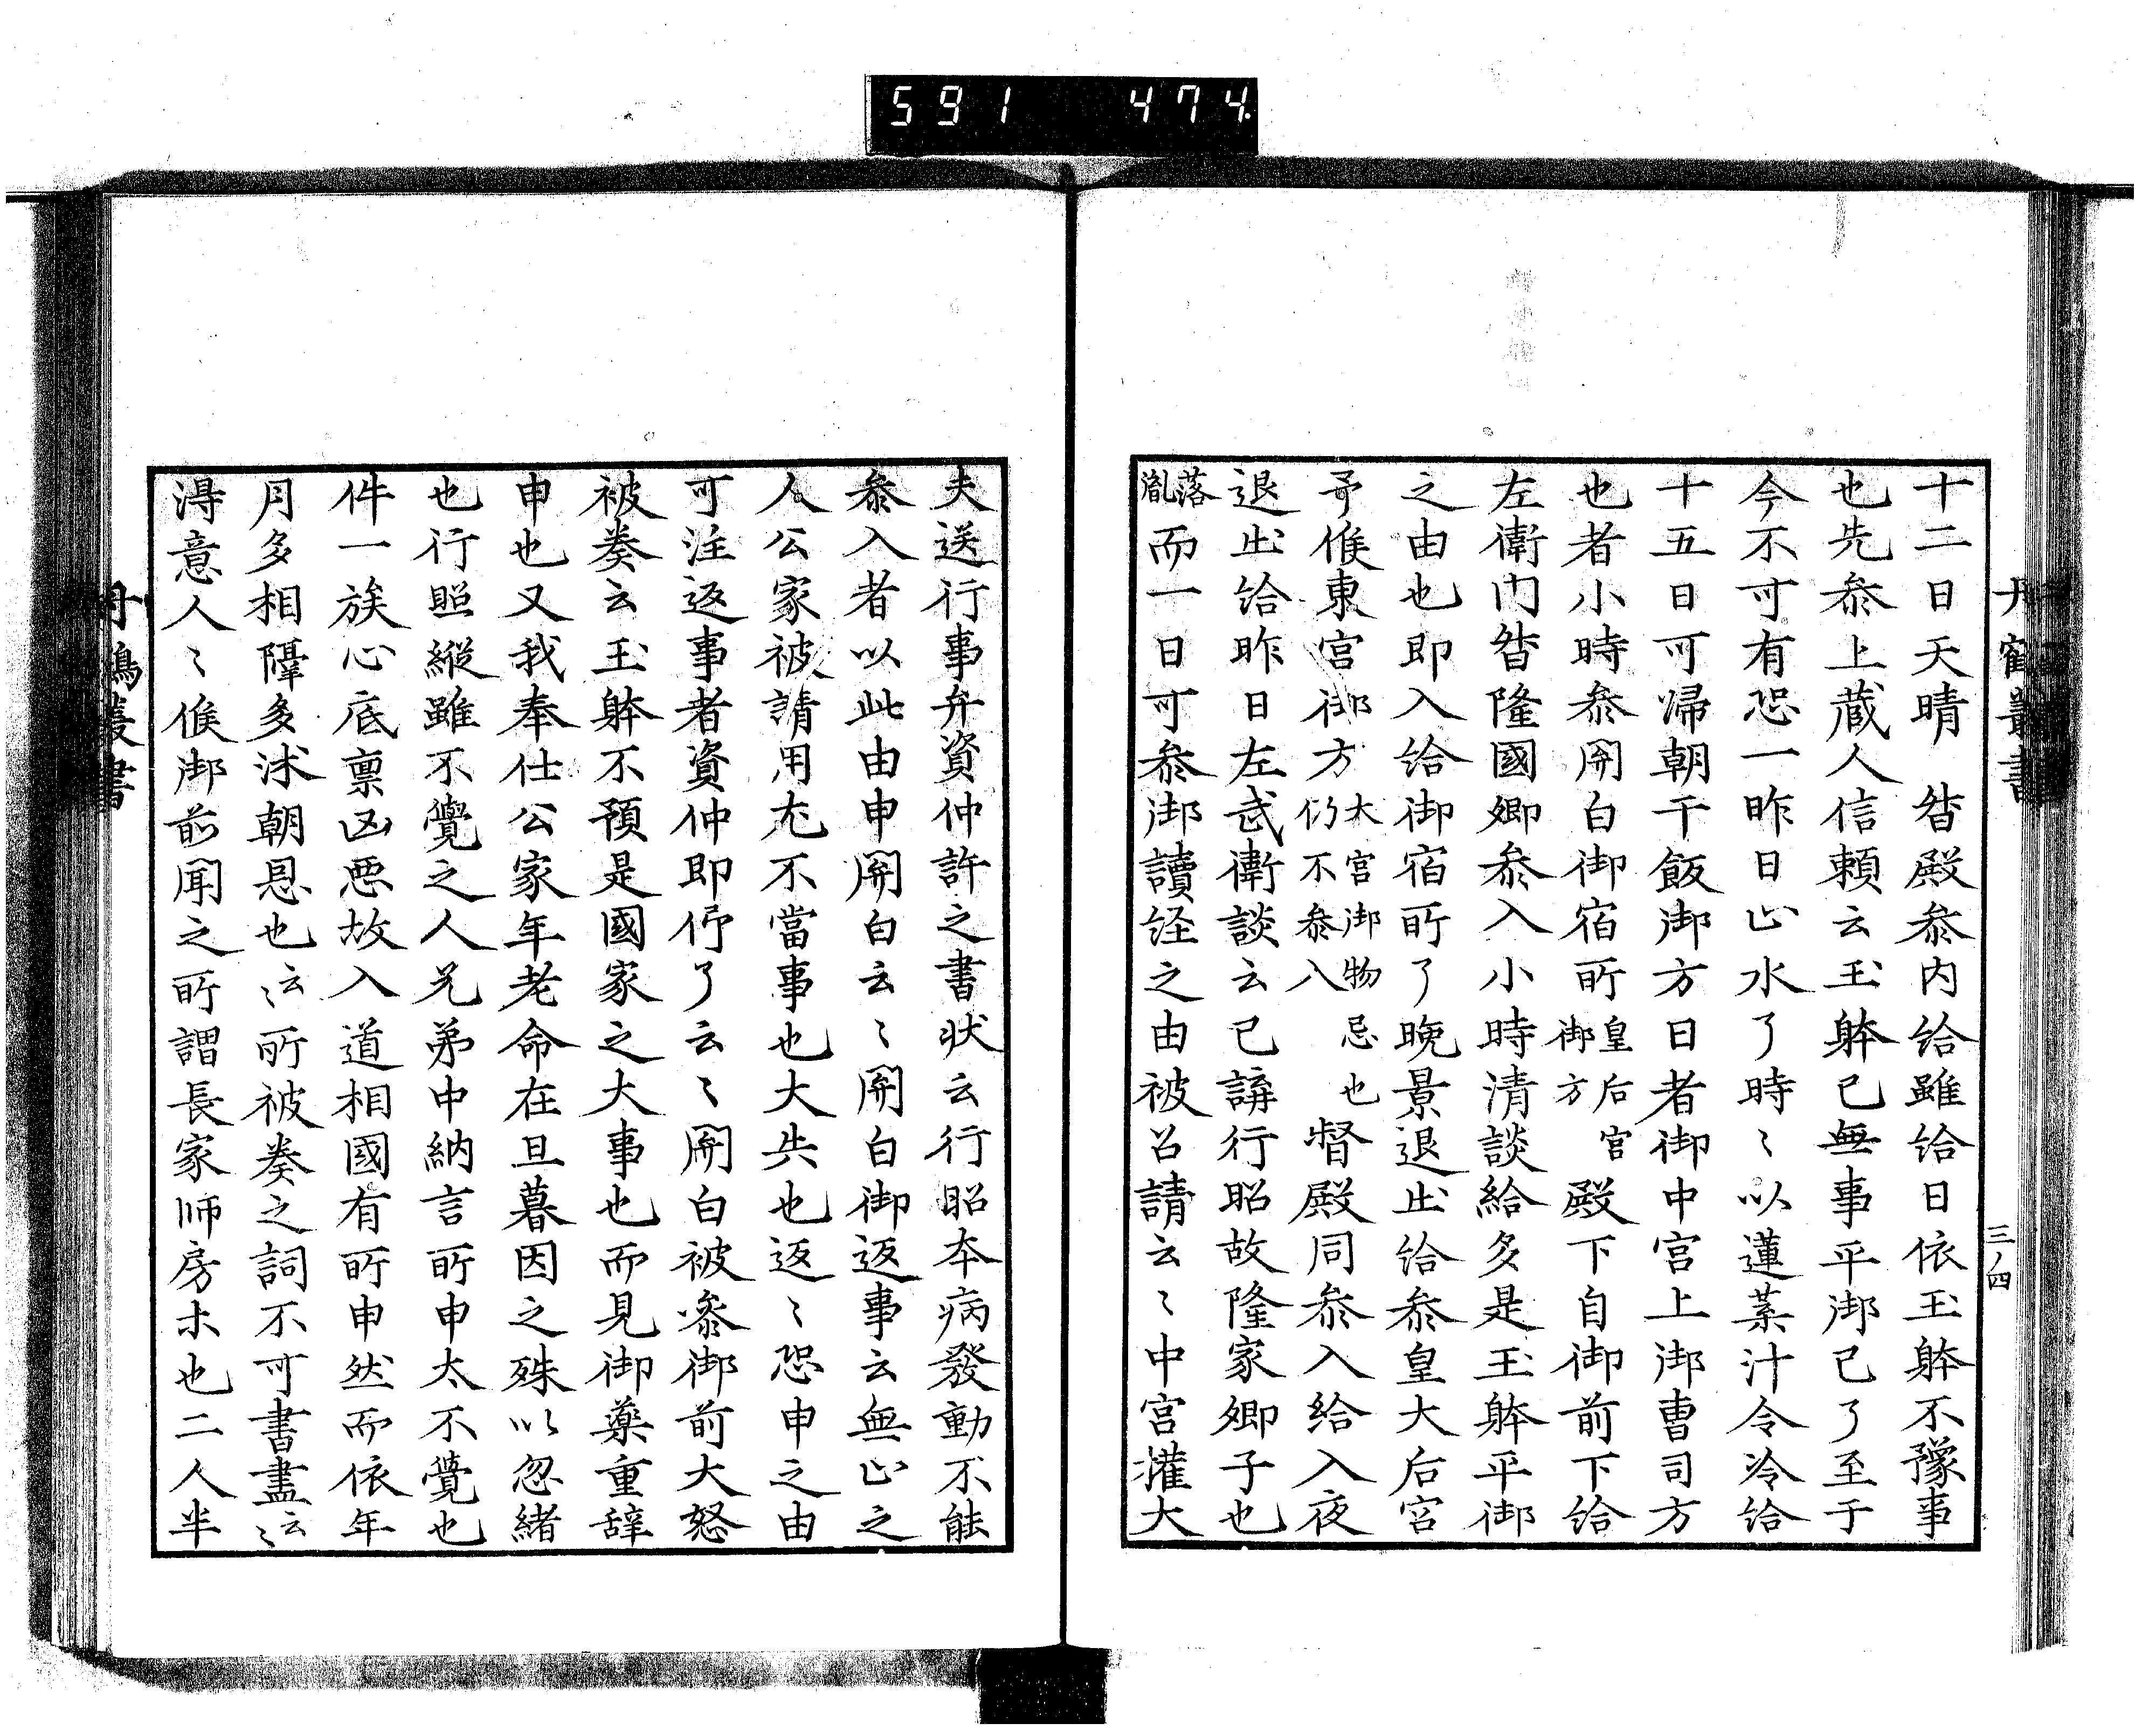 591 474
丹鶴叢書
三ノ四
十二日天晴 昝殿叅内給雖給日依玉躰不豫事
也先叅上藏人信賴云玉躰已無事平御已了至于
今不可有恐一昨日止水了時〻以蓮葉汁令冷給
十五日可歸朝干飯御方日者御中宮上御曹司方
也者小時叅關白御宿所皇后宮御方殿下自御前下給
左衛門昝隆國卿叅入小時清談給多是玉躰平御
之由也即入給御宿所了晩景退出給叅皇大后宮
予候東宮御方大宮御物忌也仍不叅入督殿同叅入給入夜
退出給昨日左武衛談云已講行昭故隆家卿子也
落胤而一日可叅御讀経之由被召請云〻中宮權大
夫送行事弁資仲許之書状云行昭本病發動不能
叅入者以此由申關白云〻關白御返事云無止之
人公家被請用尤不當事也大失也返〻恐申之由
可注返事者資仲即伃了云〻關白被叅御前大怒
被奏云玉躰不預是國家之大事也而見御藥重辞
申也又我奉仕公家年老命在旦暮因之殊以忽緒
也行照縦雖不覺之人兄弟中納言所申太不覺也
件一族心底禀凶悪故入道相國有所申然而依年
月多相隔多浴朝恩也云〻所被奏之詞不可書盡云〻
淂意人〻候御前聞之所謂長家師房ホ也二人半
丹鶴叢書